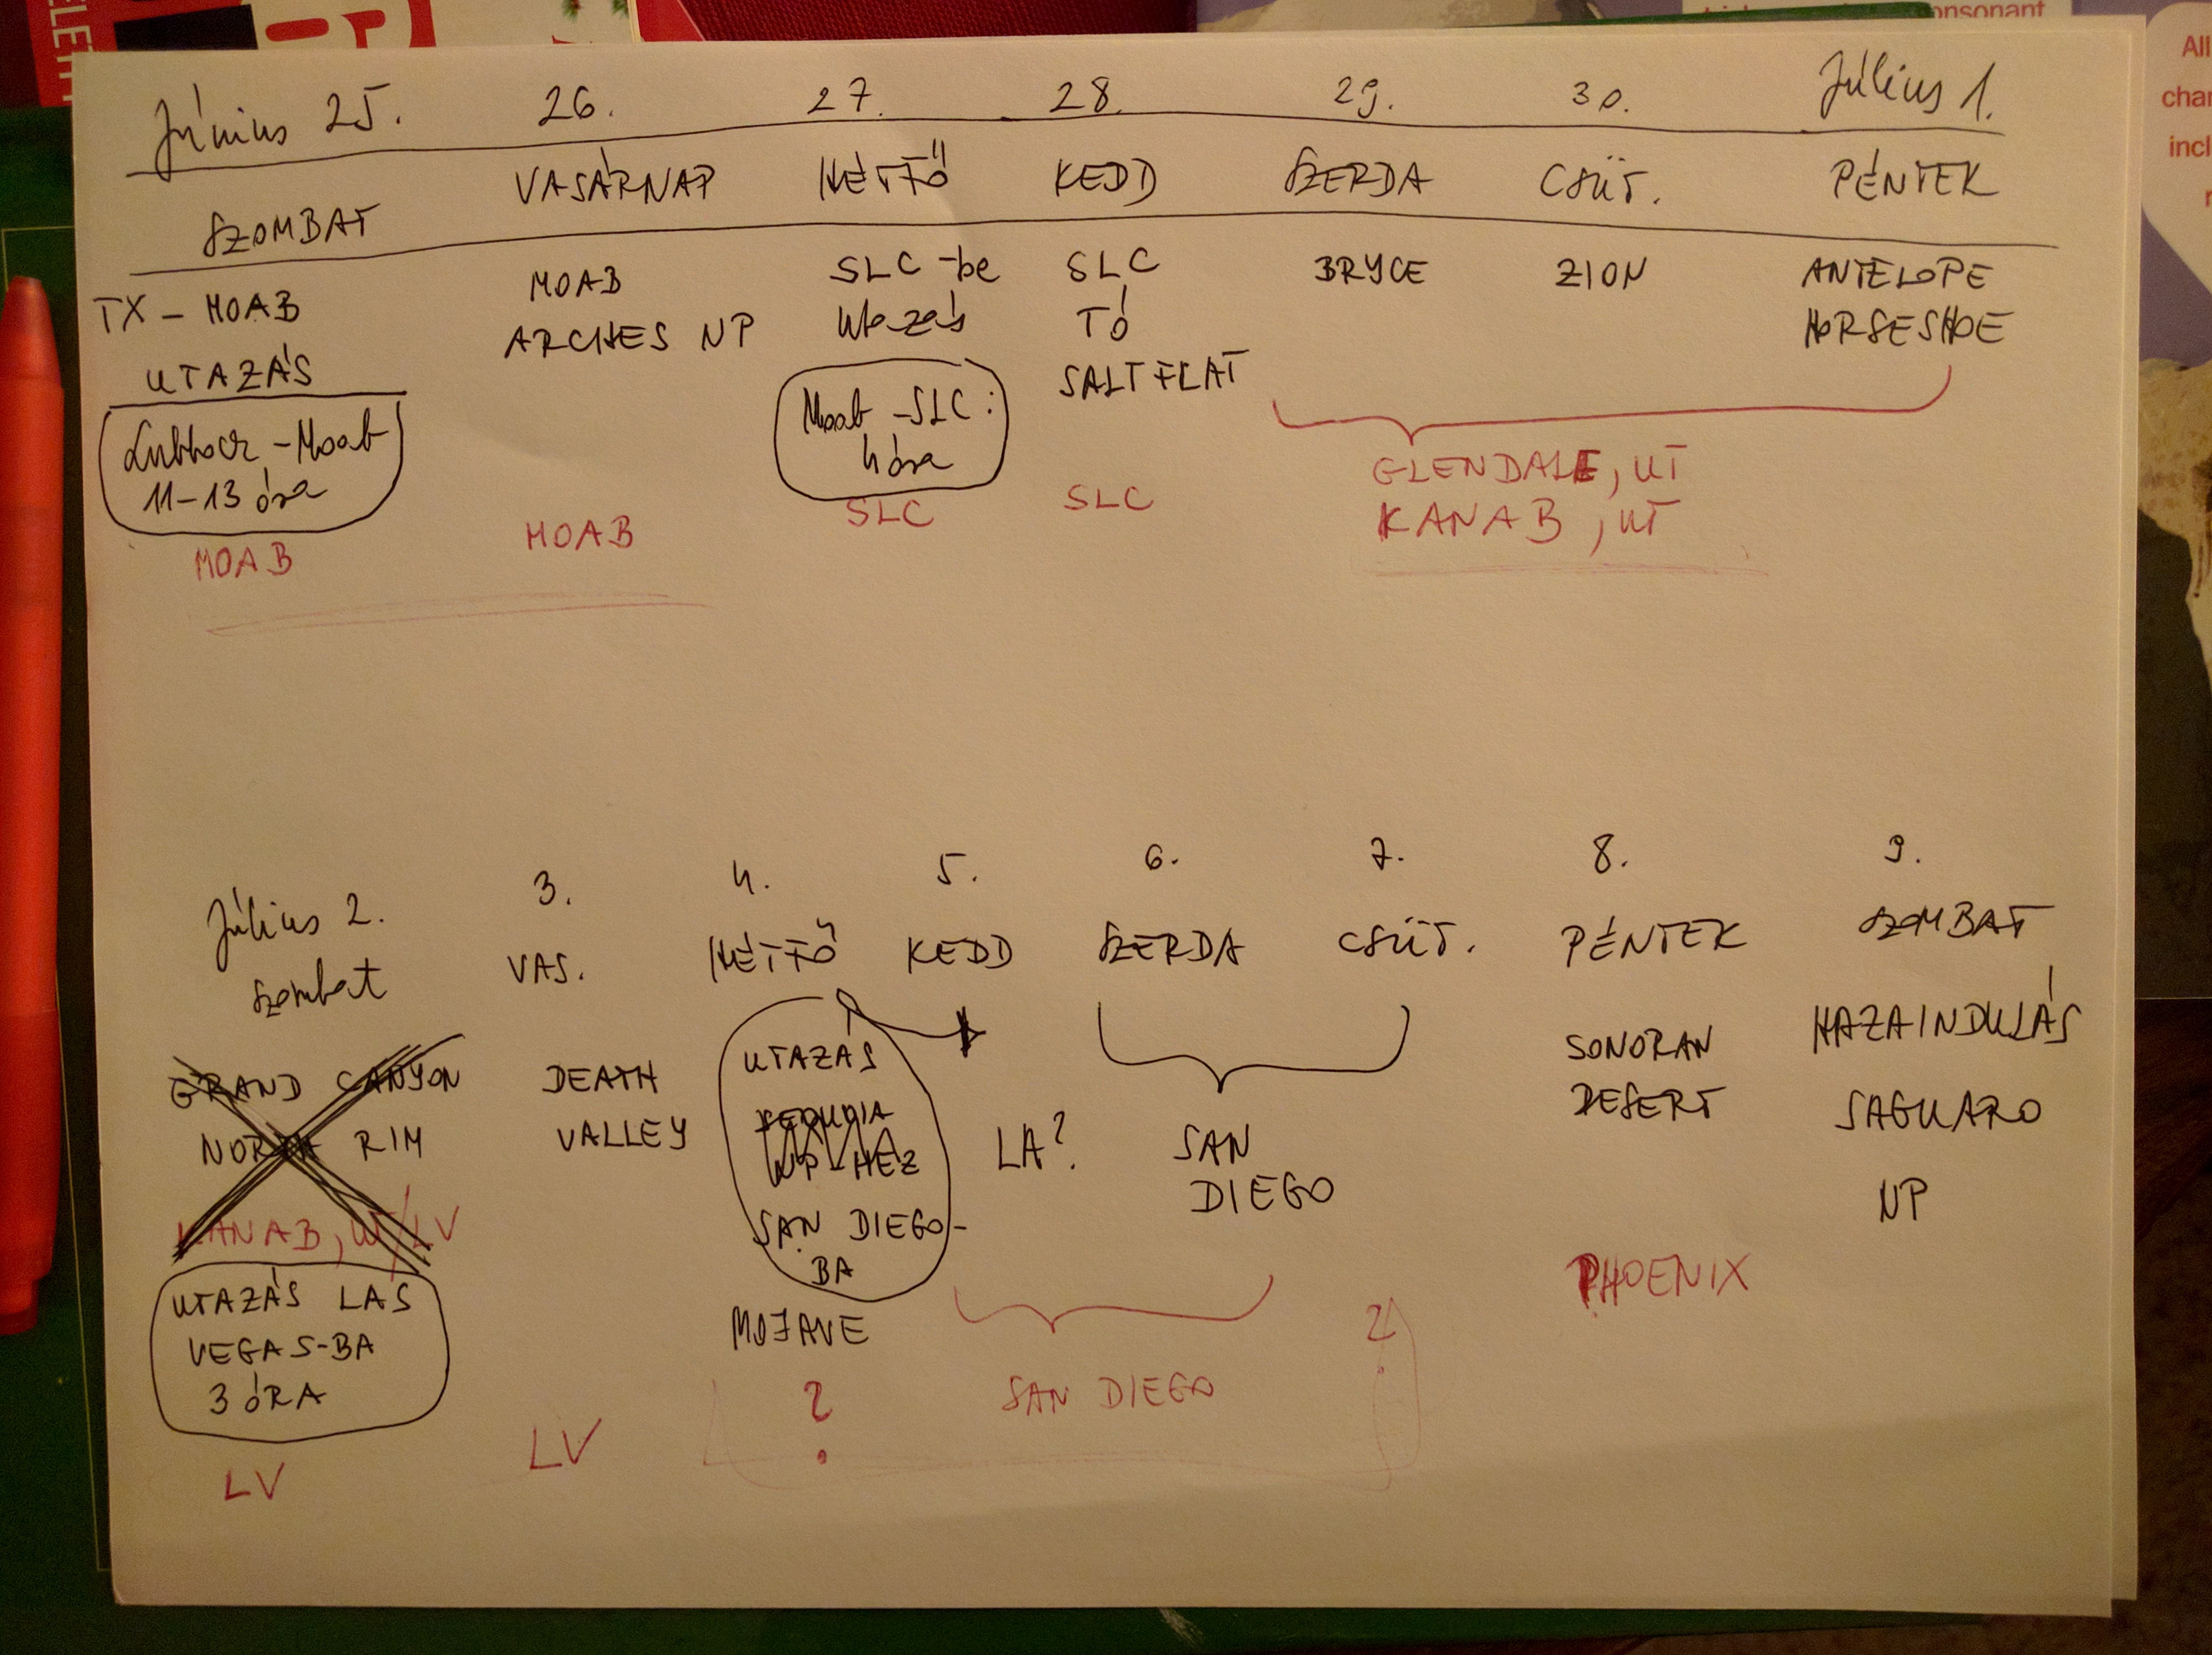 ELETI
onsonant
All
char
incl
Június 25. 26. 27. 28. 29. 30. Július 1.
SZOMBAT VASÁRNAP HÉTFŐ KEDD SZERDA CSÜT. PÉNTEK
TX - MOAB
UTAZÁS
Lubbock - Moab
11-13 óra
MOAB
MOAB
ARCHES NP
MOAB
SLC-be
utazás
Moab - SLC:
4 óra
SLC
SLC
TÓ
SALT FLAT
SLC
BRYCE
ZION
ANTELOPE
HORSESHOE
GLENDALE, UT
KANAB, UT
Július 2. 3. 4. 5. 6. 7. 8. 9.
szombat VAS. HÉTFŐ KEDD SZERDA CSÜT. PÉNTEK SZOMBAT
GRAND CANYON
NORTH RIM
KANAB, UT/LV
UTAZÁS LAS
VEGAS-BA
3 ÓRA
LV
DEATH
VALLEY
LV
UTAZÁS
SEQUOIA
NP-HEZ
SAN DIEGO-
BA
MOJAVE
?
LA?
SAN
DIEGO
SAN DIEGO
?
SONORAN
DESERT
PHOENIX
HAZAINDULÁS
SAGUARO
NP